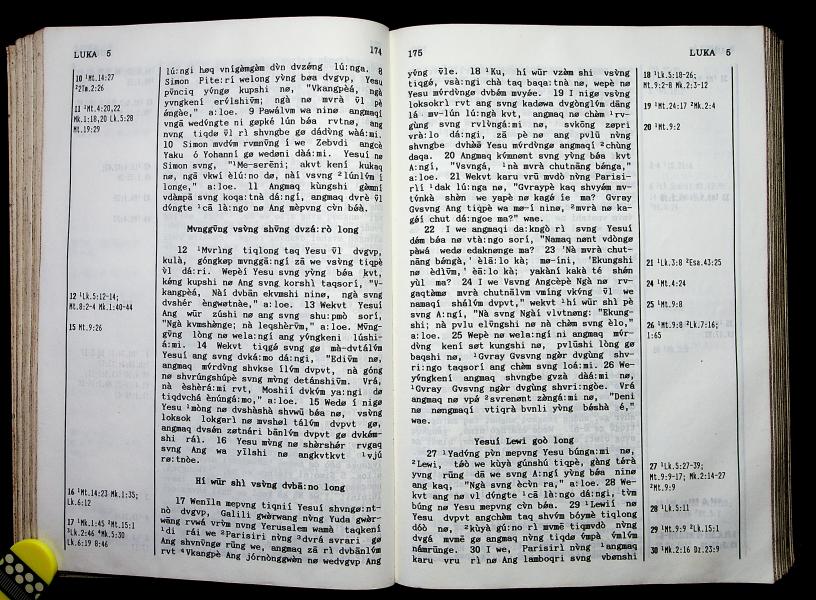 LUKA 5
174
10 ¹Mt.14:27
²2Tm.2:26
11 ¹Mt.4:20,22
Mk.1:18,20 Lk.5:28
Mt.19:29
12 ¹Lk.5:12-14;
Mt.8:2-4 Mk.1:40-44
15 Mt.9:26
16 ¹Mt.14:23 Mk.1:35;
Lk.6:12
17 ¹Mk.1:45 ²Mt.15:1
³Lk.2:46 ⁴Mk.5:30
Lk.6:19 8:46
lú:ngi høq vnígèmgàm dv̀n dvzéng lú:nga. 8
Simon Pite:rí welong yv̀ng bøa dvgvp, Yesu
pv̄nciq yv́ngø kupshi nø, "Vkangpèá, ngà
yvngkení ervlshìvm; ngà nø mvrà v̄l pè
éngàe," a:loe. 9 Pawálvm wa ninø angmaqí
vngā wedv́ngte ni gøpké lún béa rvtnø, ang
nvng tiqdø v̄l rì shvngbe gø dádv̀ng wàá:mì.
10 Simon mvdv́m rvmnv̄ng í we Zebvdi angcè
Yaku ó Yohanní gø wedøni dàá:mì. Yesuí nø
Simon svng, "¹Me-serēni; akvt kení kukaq
nø, ngā vkwí èlú:no dø, nàí vsvng ²lúnlv́m í
longe," a:loe. 11 Angmaq kùngshì gàmní
vdàmpā svng koqa:tnà dá:ngì, angmaq dvrè v̄l
dv́ngte ¹cā là:ngo nø Ang mèpvng cv̀n béá.
Mvnggv̄ng vsv̀ng shv̀ng dvzá:rò long
12 ¹Mvrìng tiqlong taq Yesu v̄l dvgvp,
kulà, góngkøp mvnggā:ngí zā we vsv̀ng tiqpè
vl dá:rì. Wepèí Yesu svng yv̀ng bøa kvt,
kéng kupshi nø Ang svng korshì taqsorí, "V-
kangpèá, Nàí dvbān ekvmshì ninø, ngà svng
dvshér èngwøtnàe," a:loe. 13 Wekvt Yesuí
Ang wúr zúshì nø ang svng shu:pmò sorí,
"Ngà kvmshènge; nà leqshèrv̄m," a:loe. Mv̄ng-
gv̄ng lòng nø wela:ngí ang yv́ngkení lúshì-
á:mì. 14 Wekvt tiqgø svng gø mà-dvtálv́m
Yesuí ang svng dvká:mo dá:ngì, "Edìv̄m nø,
angmaq mv́rdv̀ng shvkse ílv́m dvpvt, nà góng
nø shvrúngshúpè svng mv̀ng detánshìv̄m. Vrá,
nà èshèrá:mì rvt, Moshìí dvkv̄m ya:ngì dø
tiqdvchá ènúngá:mo," a:loe. 15 Wedø í nigø
Yesu ¹mòng nø dvshàshà shvwū béa nø, vsv̀ng
loksok lokgarì nø mvshøl tálv́m dvpvt gø,
angmaq dvsén zøtnári bánlv́m dvpvt gø dvkám-
shì rál. 16 Yesu mv̀ng nø shèrshér rvgaq
svng Ang wa yīlshì nø angkvtkvt ¹vjú
rø:tnòe.
Hí wūr shì vsv̀ng dvbā:no long
17 Wenīla mepvng tiqnií Yesuí shvngø:nt-
nò dvgvp, Galìlì gwèrwang nv̀ng Yuda gwèr-
wāng rvwá vrv̀m nv̀ng Yerusalem wamà taqkení
¹dì rái we ²Parisìrì nv̀ng ³dvrá svrarì gø
Ang shvnv̄ngø rúng we, angmaq zā rì dvbánlv́m
rvt ⁴Vkangpè Ang jórnònggwèn nø wedvgvp Ang
175
LUKA 5
yv́ng v̄le. 18 ¹Ku, hí wūr vzàm shì vsv̀ng
tiqgø, vsà:ngì chà taq baqa:tnà nø, wepè nø
Yesu mv́rdv̀ngø dvbém mvyøe. 19 I nigø vsv̀ng
loksokrì rvt ang svng kadøwa dvgònglv́m dāng
lá mv-lún lú:ngà kvt, angmaq nø chèm ¹rv-
gùng svng rvlv̀ngá:mì nø, svkōng zøprì
vrà:lo dá:ngì, zā pè nø ang pvlù nv̀ng
shvngbe dvhøā Yesu mv́rdv̀ngø angmaqí ²chùng
daqa. 20 Angmaq kv́mnømt svng yv̀ng béa kvt
A:ngí, "Vsvngá, ¹nà mvrà chutnāng bénga,"
a:loe. 21 Wekvt karu vrū mvdò nv̀ng Parisì-
rìí ¹dak lú:nga nø, "Gvraypè kaq shvyøm mv-
tv́nkà shèn we yapè nø kagé íe ma? Gvray
Gvsvng Ang tiqpè wa mø-í ninø, ²mvrà nø ka-
géí chut dá:ngoe ma?" wae.
22 I we angmaqí da:kngò rì svng Yesuí
dém béa nø vtà:ngo sorí, "Namaq nømt vdòngø
pàwá wedø edaknø̀nge ma? 23 'Nà mvrà chut-
nāng béngà,' èlā:lo kà; mø-íni, 'Ekungshì
nø èdìv̄m,' èā:lo kà; yakàní kakà té shén
yùl ma? 24 I we Vsvng Angcèpè Ngà nø rv-
gaqtømø mvrà chutnálv́m vmìng vkv̄ng v̄l we
namaqí shálv́m dvpvt," wekvt ¹hí wūr shì pè
svng A:ngí, "Nà svng Ngàí vlvtnøng: "Ekung-
shì; nà pvlu elv̄ngshì nø nà chèm svng èlo,"
a:loe. 25 Wepè nø wela:ngí ní angmaq mv́r-
dv̀ng kení søt kungshì nø, pvlūshì lòng gø
baqshì nø, ¹Gvray Gvsvng ngàr dvgùng shv-
rì:ngo taqsorí ang chèm svng loá:mì. 26 We-
yv́ngkení angmaq shvngbe gvzà dàá:mì nø,
¹Gvray Gvsvng ngàr dvgùng shvrì:ngòe. Vrá
angmaq nø vpá ²svrenømt zèngá:mì nø, "Deni
nø nøngmaqí vtiqrà bvnlì yv̀ng bøshà é,"
wae.
Yesuí Lewi goò long
27 ¹Yadv́ng pv̀n mepvng Yesu búnga:mì nø,
²Lewi, téò we kùyà gúnshú tiqpè, gàng térá
yvng rūng dā we svng A:ngí yv̀ng béng ninø
ang kaq, "Ngà svng ècv̀n ra," a:loe. 28 We-
kvt ang nø vl dv́ngte ¹cā là:ngo dá:ngì, tv̀m
búng nø Yesu mèpvng cv̀n béá. 29 ¹Lewií nø
Yesu dvpvt angchèm taq shvv́m bōymè tiqlong
dóò nø, ²kùyà gú:no rì mvmē tiqmvdò nv̀ng
dvgá mvmē gø angmaq nv̀ng tiqdø v́mpà v́mlv́m
námrūnge. 30 I we, Parisìrì nv̀ng ¹angmaq
karu vru rì nø Ang lamboqrì svng vbønshì
18 ¹Lk.5:18-26;
Mt.9:2-8 Mk.2:3-12
19 ¹Mt.24:17 ²Mk.2:4
20 ¹Mt.9:2
21 ¹Lk.3:8 ²Esa.43:25
24 ¹Mt.4:24
25 ¹Mt.9:8
26 ¹Mt.9:8 ²Lk.7:16;
1:65
27 ¹Lk.5:27-39;
Mt.9:9-17; Mk.2:14-27
²Mt.9:9
28 ¹Lk.5:11
29 ¹Mt.9:9 ²Lk.15:1
30 ¹Mk.2:16 Dz.23:9